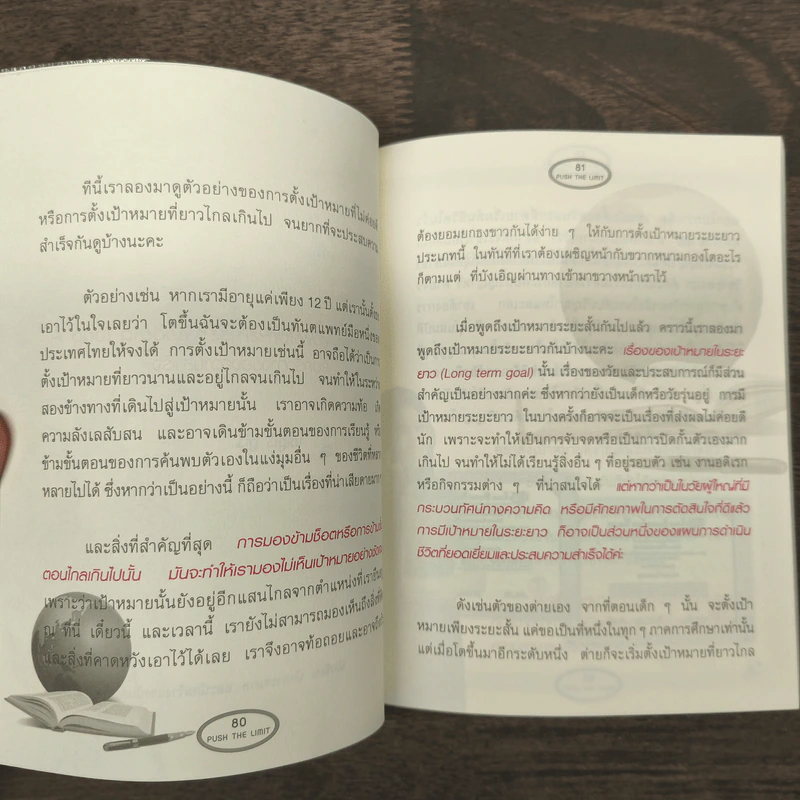 ทีนี้เราลองมาดูตัวอย่างของการตั้งเป้าหมายที่ไม่ค่อยดี
หรือการตั้งเป้าหมายที่ยาวไกลเกินไป จนยากที่จะประสบความ
สำเร็จกันดูบ้างนะคะ
ตัวอย่างเช่น หากเรามีอายุแค่เพียง 12 ปี แต่เรานั้นตั้งใจ
เอาไว้ในใจเลยว่า โตขึ้นฉันจะต้องเป็นทันตแพทย์มือหนึ่งของ
ประเทศไทยให้จงได้ การตั้งเป้าหมายเช่นนี้ อาจถือได้ว่าเป็นการ
ตั้งเป้าหมายที่ยาวนานและอยู่ไกลจนเกินไป จนทำให้ในระหว่าง
สองข้างทางที่เดินไปสู่เป้าหมายนั้น เราอาจเกิดความท้อ เกิด
ความลังเลสับสน และอาจเดินข้ามขั้นตอนของการเรียนรู้ หรือ
ข้ามขั้นตอนของการค้นพบตัวเองในแง่มุมอื่น ๆ ของชีวิตที่หลาก
หลายไปได้ ซึ่งหากว่าเป็นอย่างนี้ ก็ถือว่าเป็นเรื่องที่น่าเสียดายมาก
และสิ่งที่สำคัญที่สุด การมองข้ามช็อตหรือการข้ามขั้น
ตอนไกลเกินไปนั้น มันจะทำให้เรามองไม่เห็นเป้าหมายอย่างชัดเจน
เพราะว่าเป้าหมายนั้นยังอยู่อีกแสนไกลจากตำแหน่งที่เรายืนอยู่
ณ ที่นี่ เดี๋ยวนี้ และเวลานี้ เรายังไม่สามารถมองเห็นถึงสิ่งที่
และสิ่งที่คาดหวังเอาไว้ได้เลย เราจึงอาจท้อถอยและอาจถึง
80
PUSH THE LIMIT
81
PUSH THE LIMIT
ต้องยอมยกธงขาวกันได้ง่าย ๆ ให้กับการตั้งเป้าหมายระยะยาว
ประเภทนี้ ในทันทีที่เราต้องเผชิญหน้ากับขวากหนามกองโตอะไร
ก็ตามแต่ ที่บังเอิญผ่านทางเข้ามาขวางหน้าเราไว้
เมื่อพูดถึงเป้าหมายระยะสั้นกันไปแล้ว คราวนี้เราลองมา
พูดถึงเป้าหมายระยะยาวกันบ้างนะคะ เรื่องของเป้าหมายในระยะ
ยาว (Long term goal) นั้น เรื่องของวัยและประสบการณ์ก็มีส่วน
สำคัญเป็นอย่างมากค่ะ ซึ่งหากว่ายังเป็นเด็กหรือวัยรุ่นอยู่ การมี
เป้าหมายระยะยาว ในบางครั้งก็อาจจะเป็นเรื่องที่ส่งผลไม่ค่อยดี
นัก เพราะจะทำให้เป็นการจับจดหรือเป็นการปิดกั้นตัวเองมาก
เกินไป จนทำให้ไม่ได้เรียนรู้สิ่งอื่น ๆ ที่อยู่รอบตัว เช่น งานอดิเรก
หรือกิจกรรมต่าง ๆ ที่น่าสนใจได้ แต่หากว่าเป็นในวัยผู้ใหญ่ที่มี
กระบวนทัศน์ทางความคิด หรือมีศักยภาพในการตัดสินใจที่ดีแล้ว
การมีเป้าหมายในระยะยาว ก็อาจเป็นส่วนหนึ่งของแผนการดำเนิน
ชีวิตที่ยอดเยี่ยมและประสบความสำเร็จได้ค่ะ
ดังเช่นตัวของต่ายเอง จากที่ตอนเด็ก ๆ นั้น จะตั้งเป้า
หมายเพียงระยะสั้น แค่ขอเป็นที่หนึ่งในทุก ๆ ภาคการศึกษาเท่านั้น
แต่เมื่อโตขึ้นมาอีกระดับหนึ่ง ต่ายก็จะเริ่มตั้งเป้าหมายที่ยาวไกล